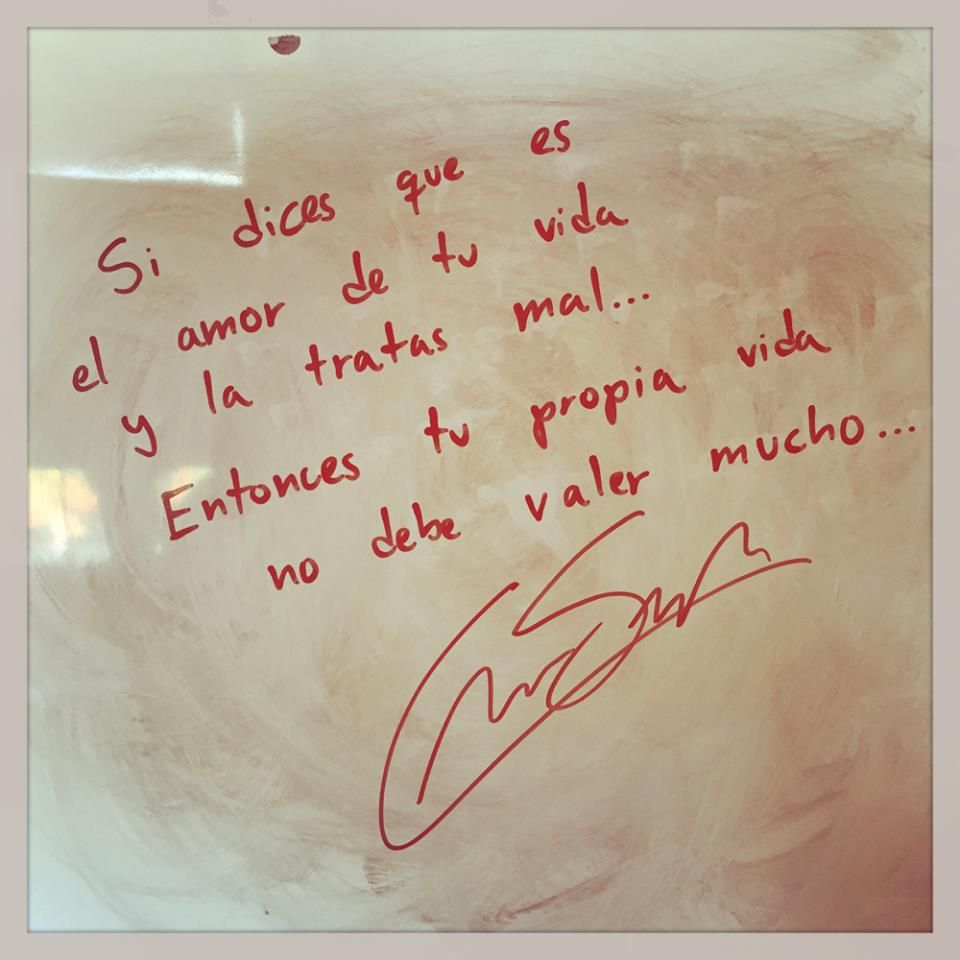 Si dices que es
el amor de tu vida
y la tratas mal...
Entonces tu propia vida
no debe valer mucho...